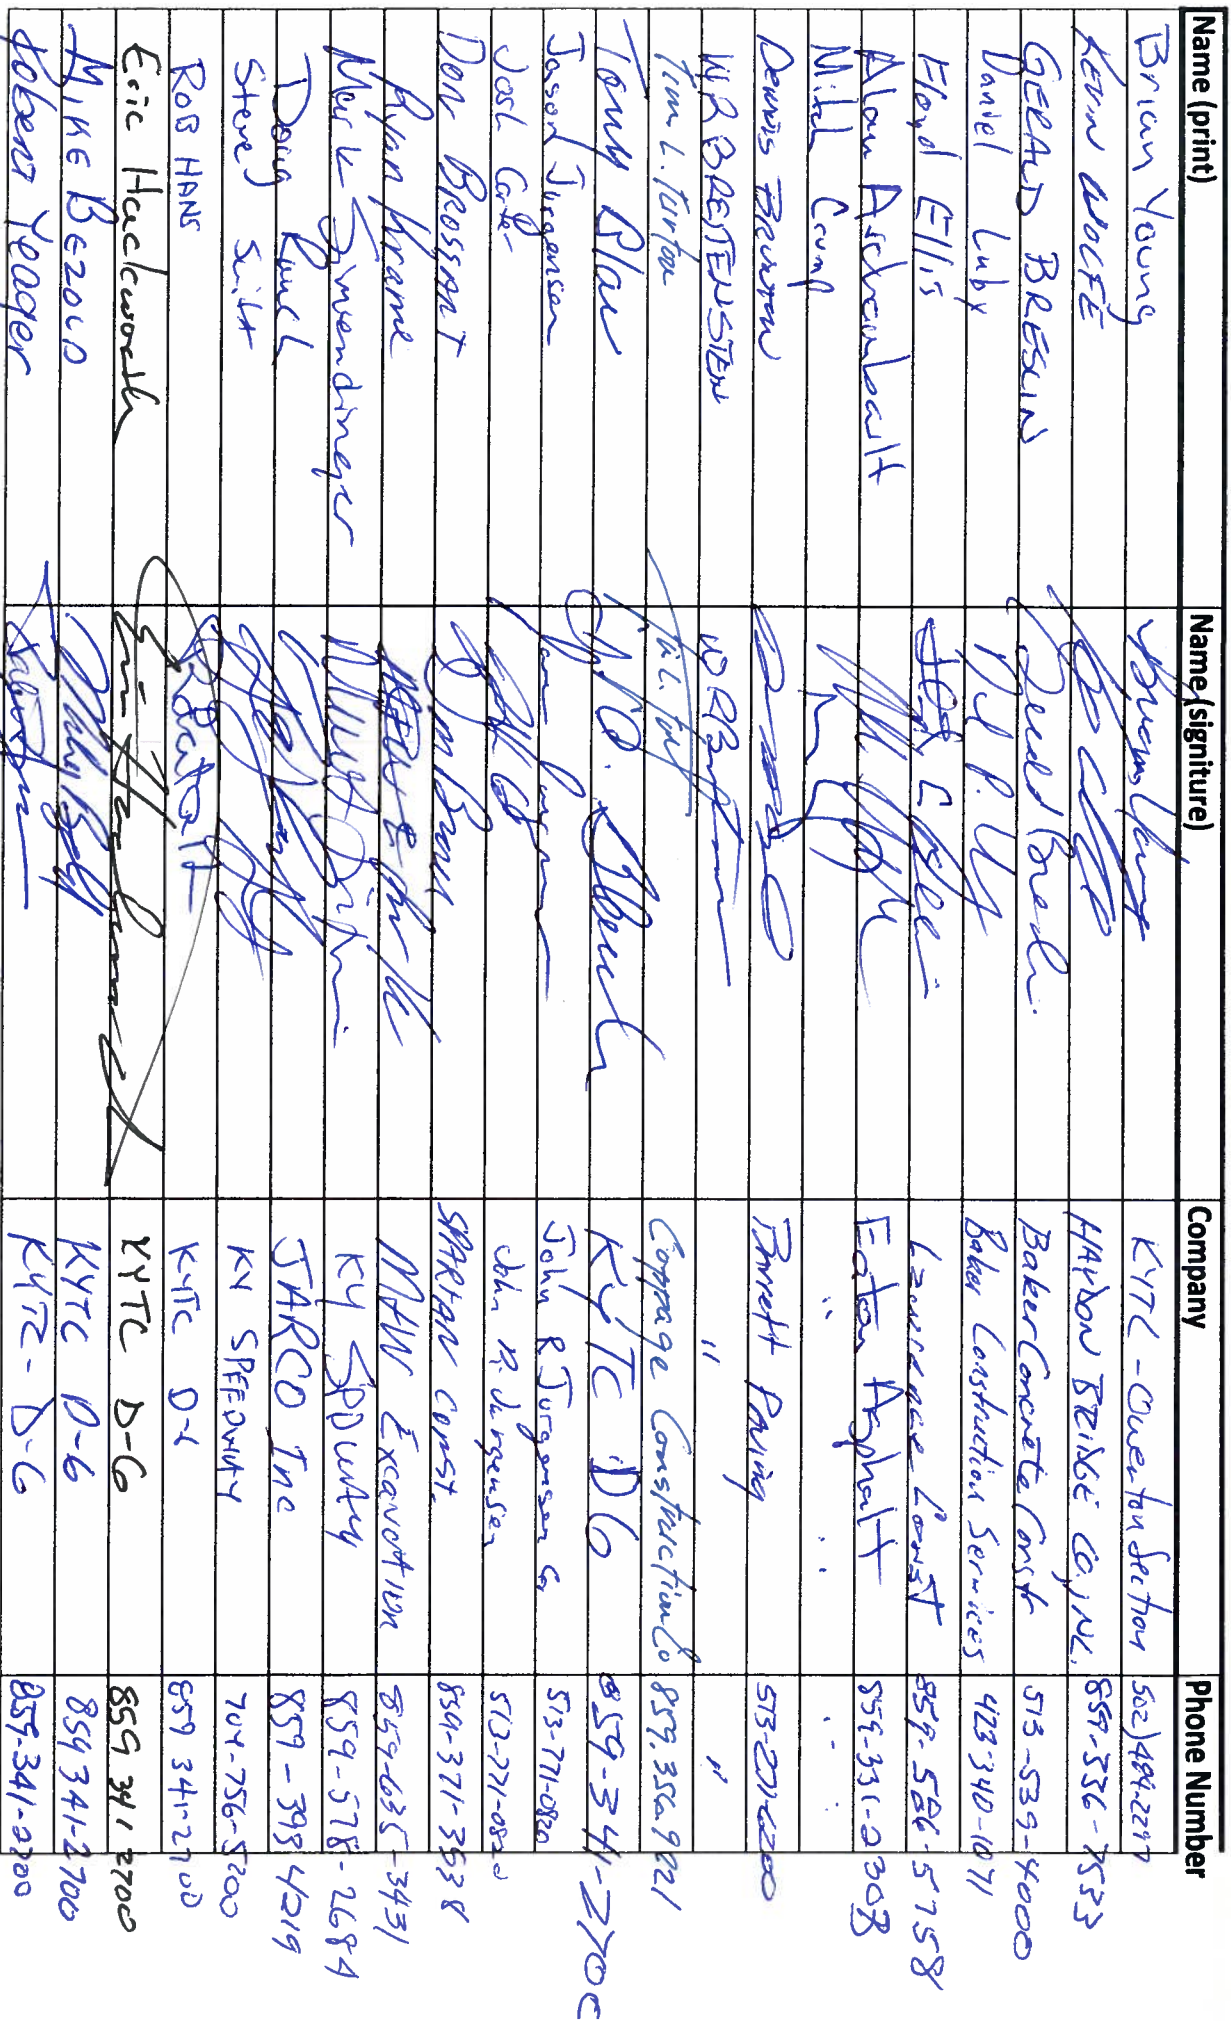 Name (print) Name (signiture) Company Phone Number
Brian Young KYTC - Owenton Section 502) 484-2297
KEVIN WOLFE HAYDON BRIDGE CO., INC. 859-336-7533
GERALD BRESLIN Baker Concrete Constr 513-539-4000
Daniel Luby Baker Construction Services 423 340-1071
Floyd Ellis Lawrence Const 859-586-5758
Alan Archambault Eaton Asphalt 859-331-0308
Mitch Crump " " "
Dennis Brunton Barrett Paving 513-271-6200
W R BREITENSTEIN " "
Tim L. Turton Coppage Construction Co 859.356.9821
Tony Blau KYTC D6 859-341-270
Jason Jurgensen John R Jurgensen Co 513-771-0820
Josh Carter John R. Jurgensen 513-771-0820
Don BROSSART SPARTAN CONST. 859-371-3538
Ryan Krame MAW Excavation 859-635-3431
Mark Simendinger KY SPDWAY 859-578-2684
Doug JARCO Inc 859-393-4219
Steve Swift KY SPEEDWAY 704-756-5200
ROB HANS KYTC 859 341-2700
Eric Hackworth KYTC D-6 859 341 2700
MIKE BEZOLD KYTC D-6 859 341-2700
Robert Yeager KYTC-D-6 859-341-2700